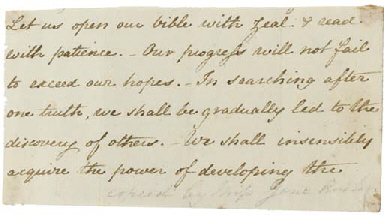 Let us open our bible with zeal & read
with patience. - Our progress will not fail
to exceed our hopes. - In searching after
one truth, we shall be gradually led to the
discovery of others. - We shall insensibly
acquire the power of developing the
copied by Miss Jane